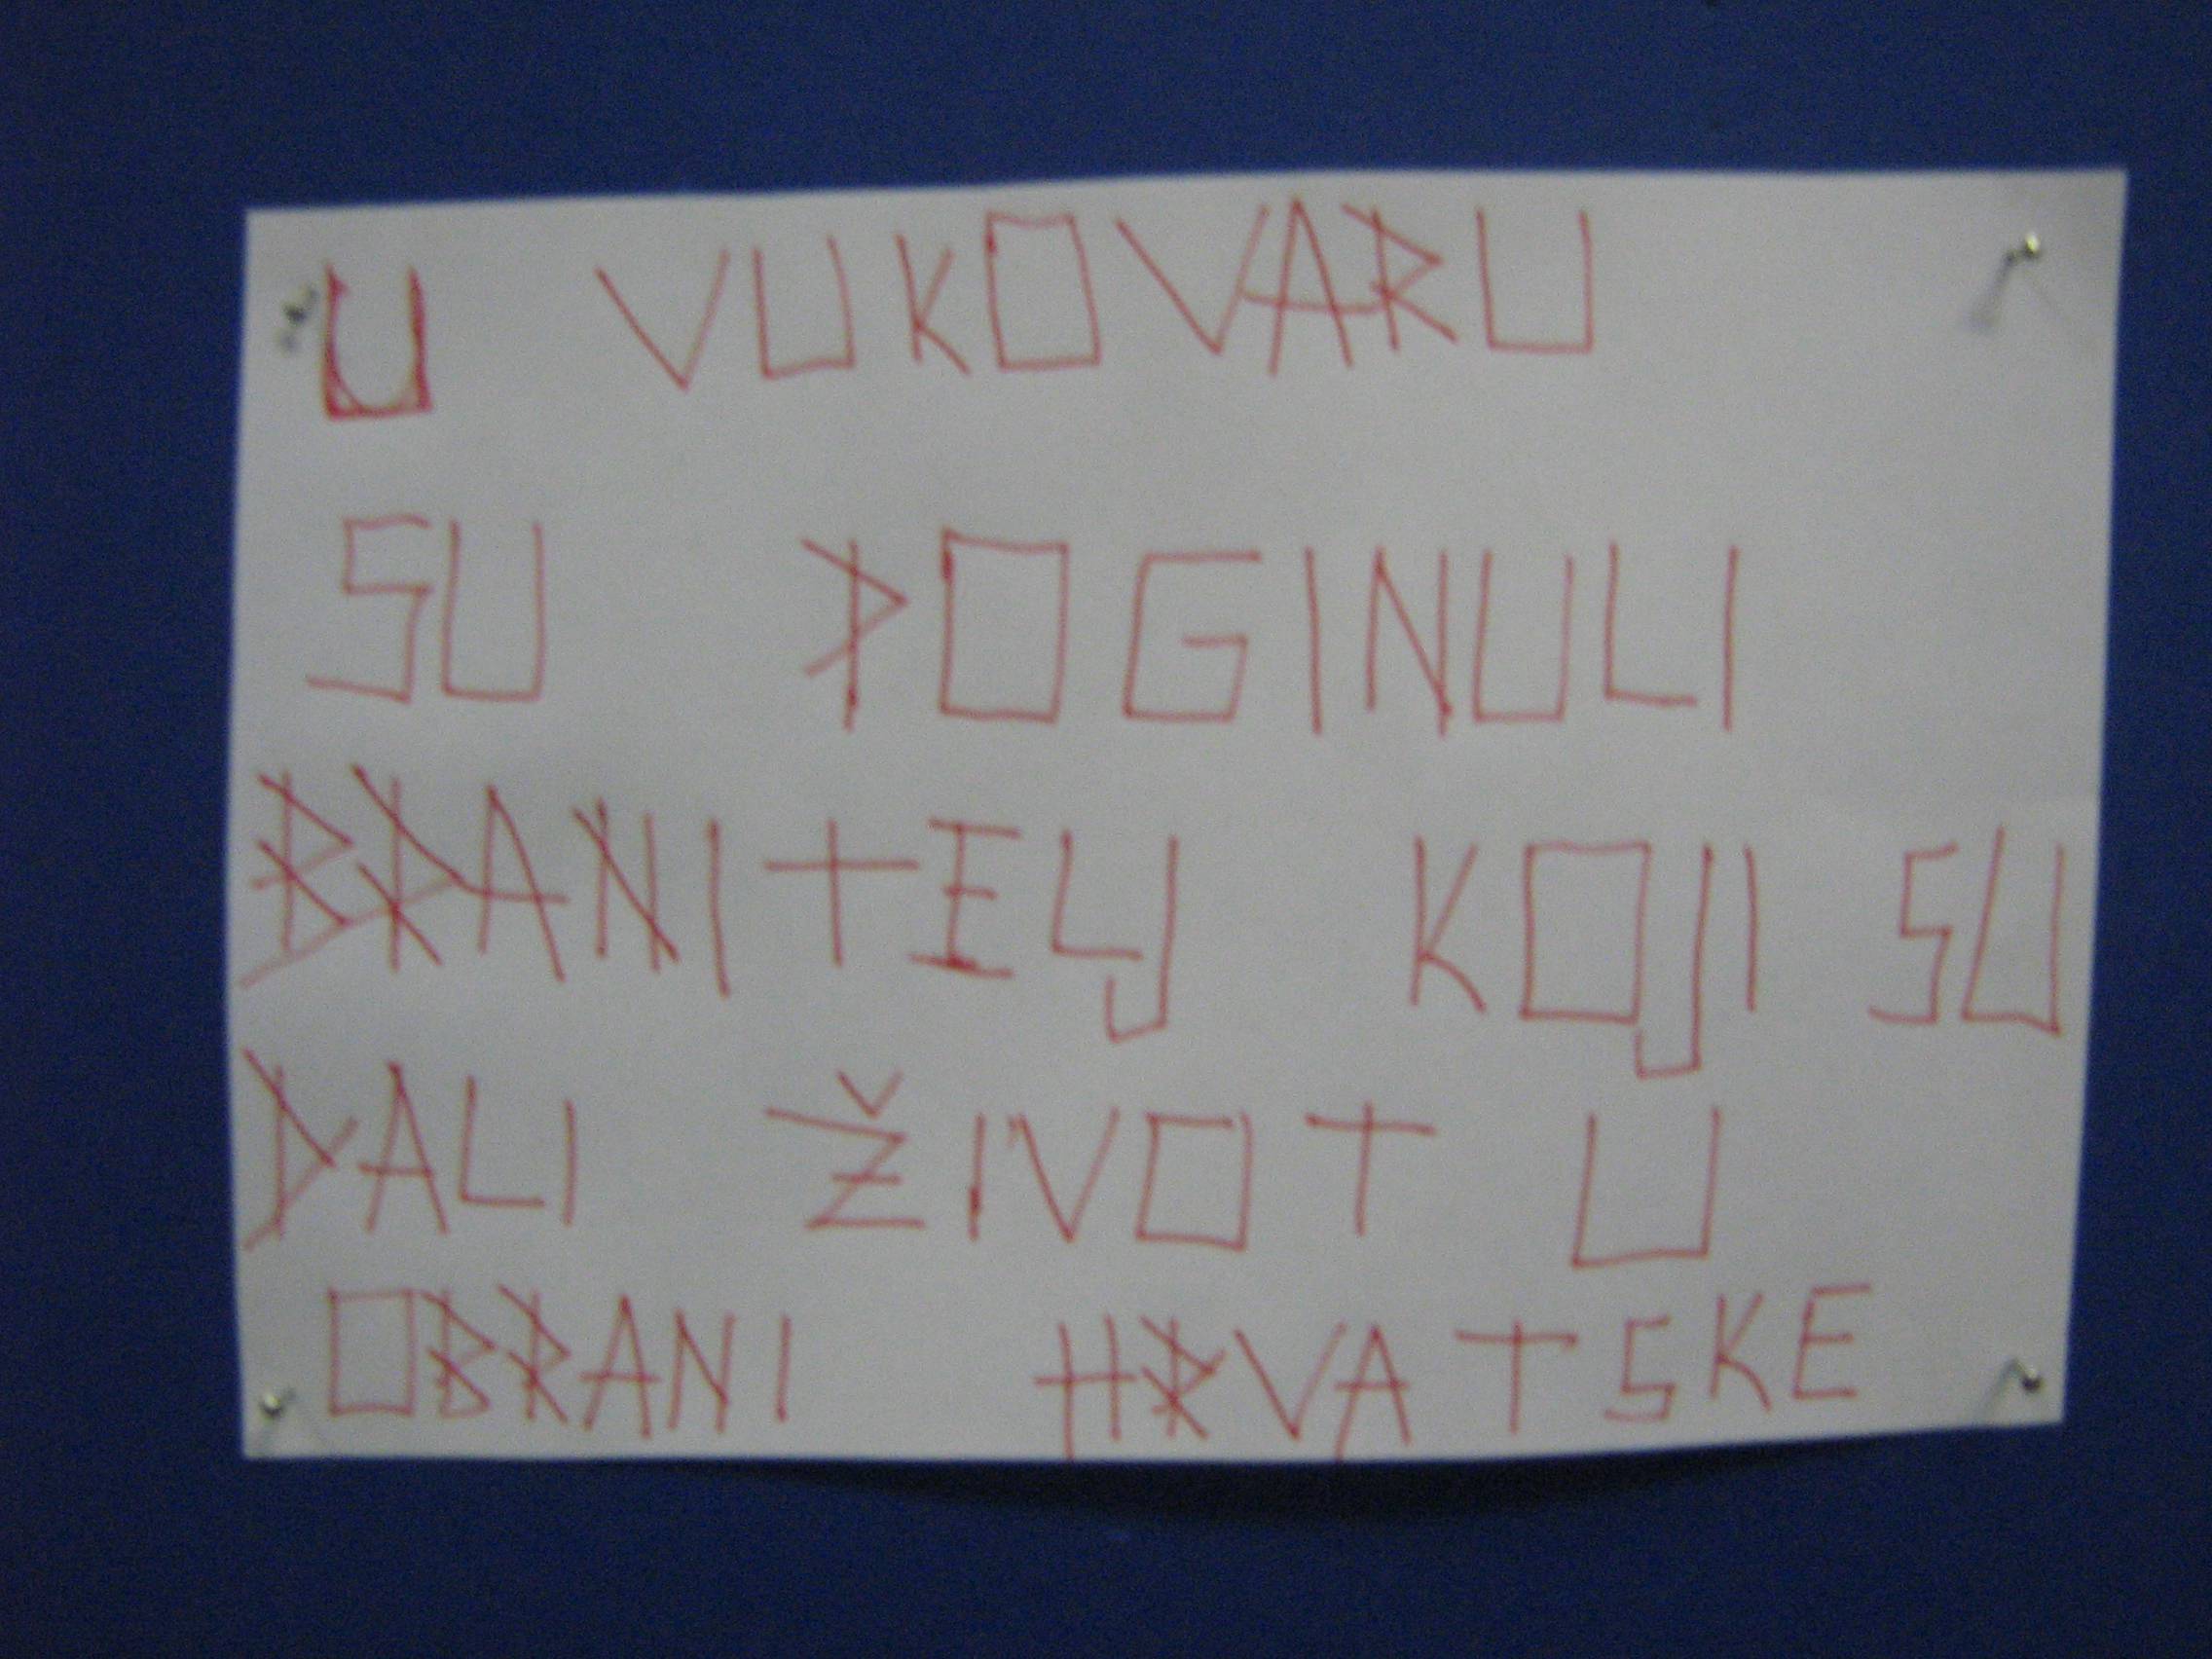 U VUKOVARU
SU POGINULI
BRANITELJ KOJI SU
DALI ŽIVOT U
OBRANI HRVATSKE